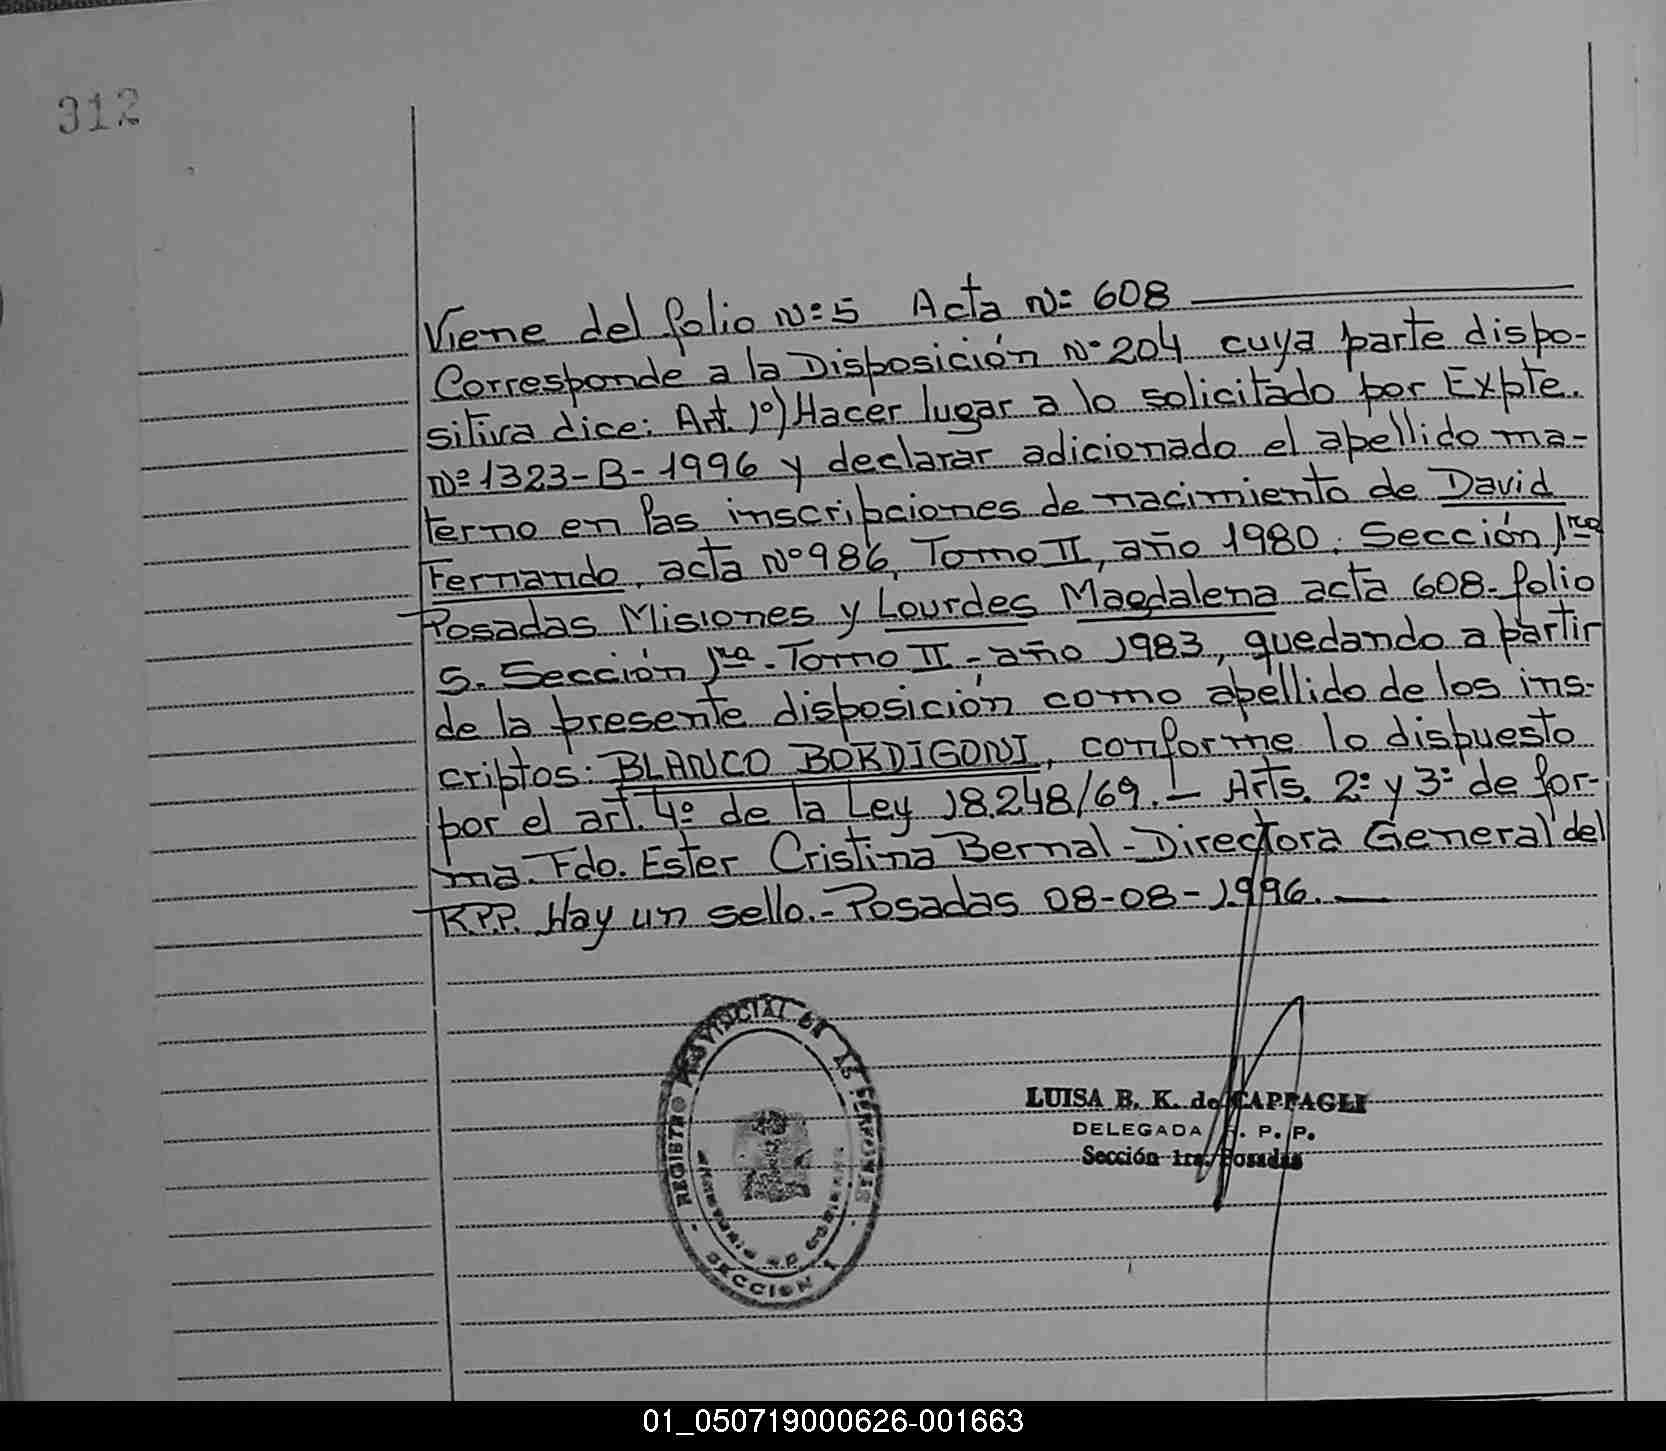 312
Viene del folio Nº 5 Acta Nº 608
Corresponde a la Disposición Nº 204 cuya parte dispo-
sitiva dice: Art. 1º) Hacer lugar a lo solicitado por Expte.
Nº 1323-B-1996 y declarar adicionado el apellido ma-
terno en las inscripciones de nacimiento de David
Fernando, acta Nº 986, Tomo II, año 1980. Sección 1ra
Posadas Misiones y Lourdes Magdalena acta 608-folio
5. Sección 1ra. Tomo II - año 1983, quedando a partir
de la presente disposición como apellido de los ins-
criptos: BLANCO BORDIGONI, conforme lo dispuesto
por el art. 4º de la Ley 18.248/69.- Arts. 2º y 3º de for-
ma. Fdo. Ester Cristina Bernal-Directora General del
R.P.P. Hay un sello.- Posadas 08-08-1996.
REGISTRO PROVINCIAL DE LAS PERSONAS
SECCION 1
LUISA B. K. de CAPPAGLI
DELEGADA R. P. P.
Sección 1ra. Posadas
01_050719000626-001663